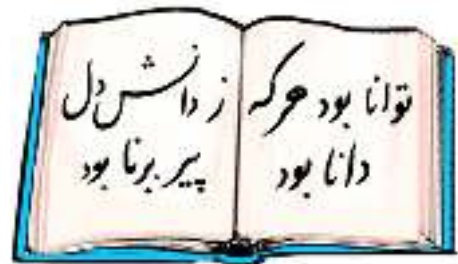 توانا بود هر که
دانا بود
ز دانش دل
پیر برنا بود